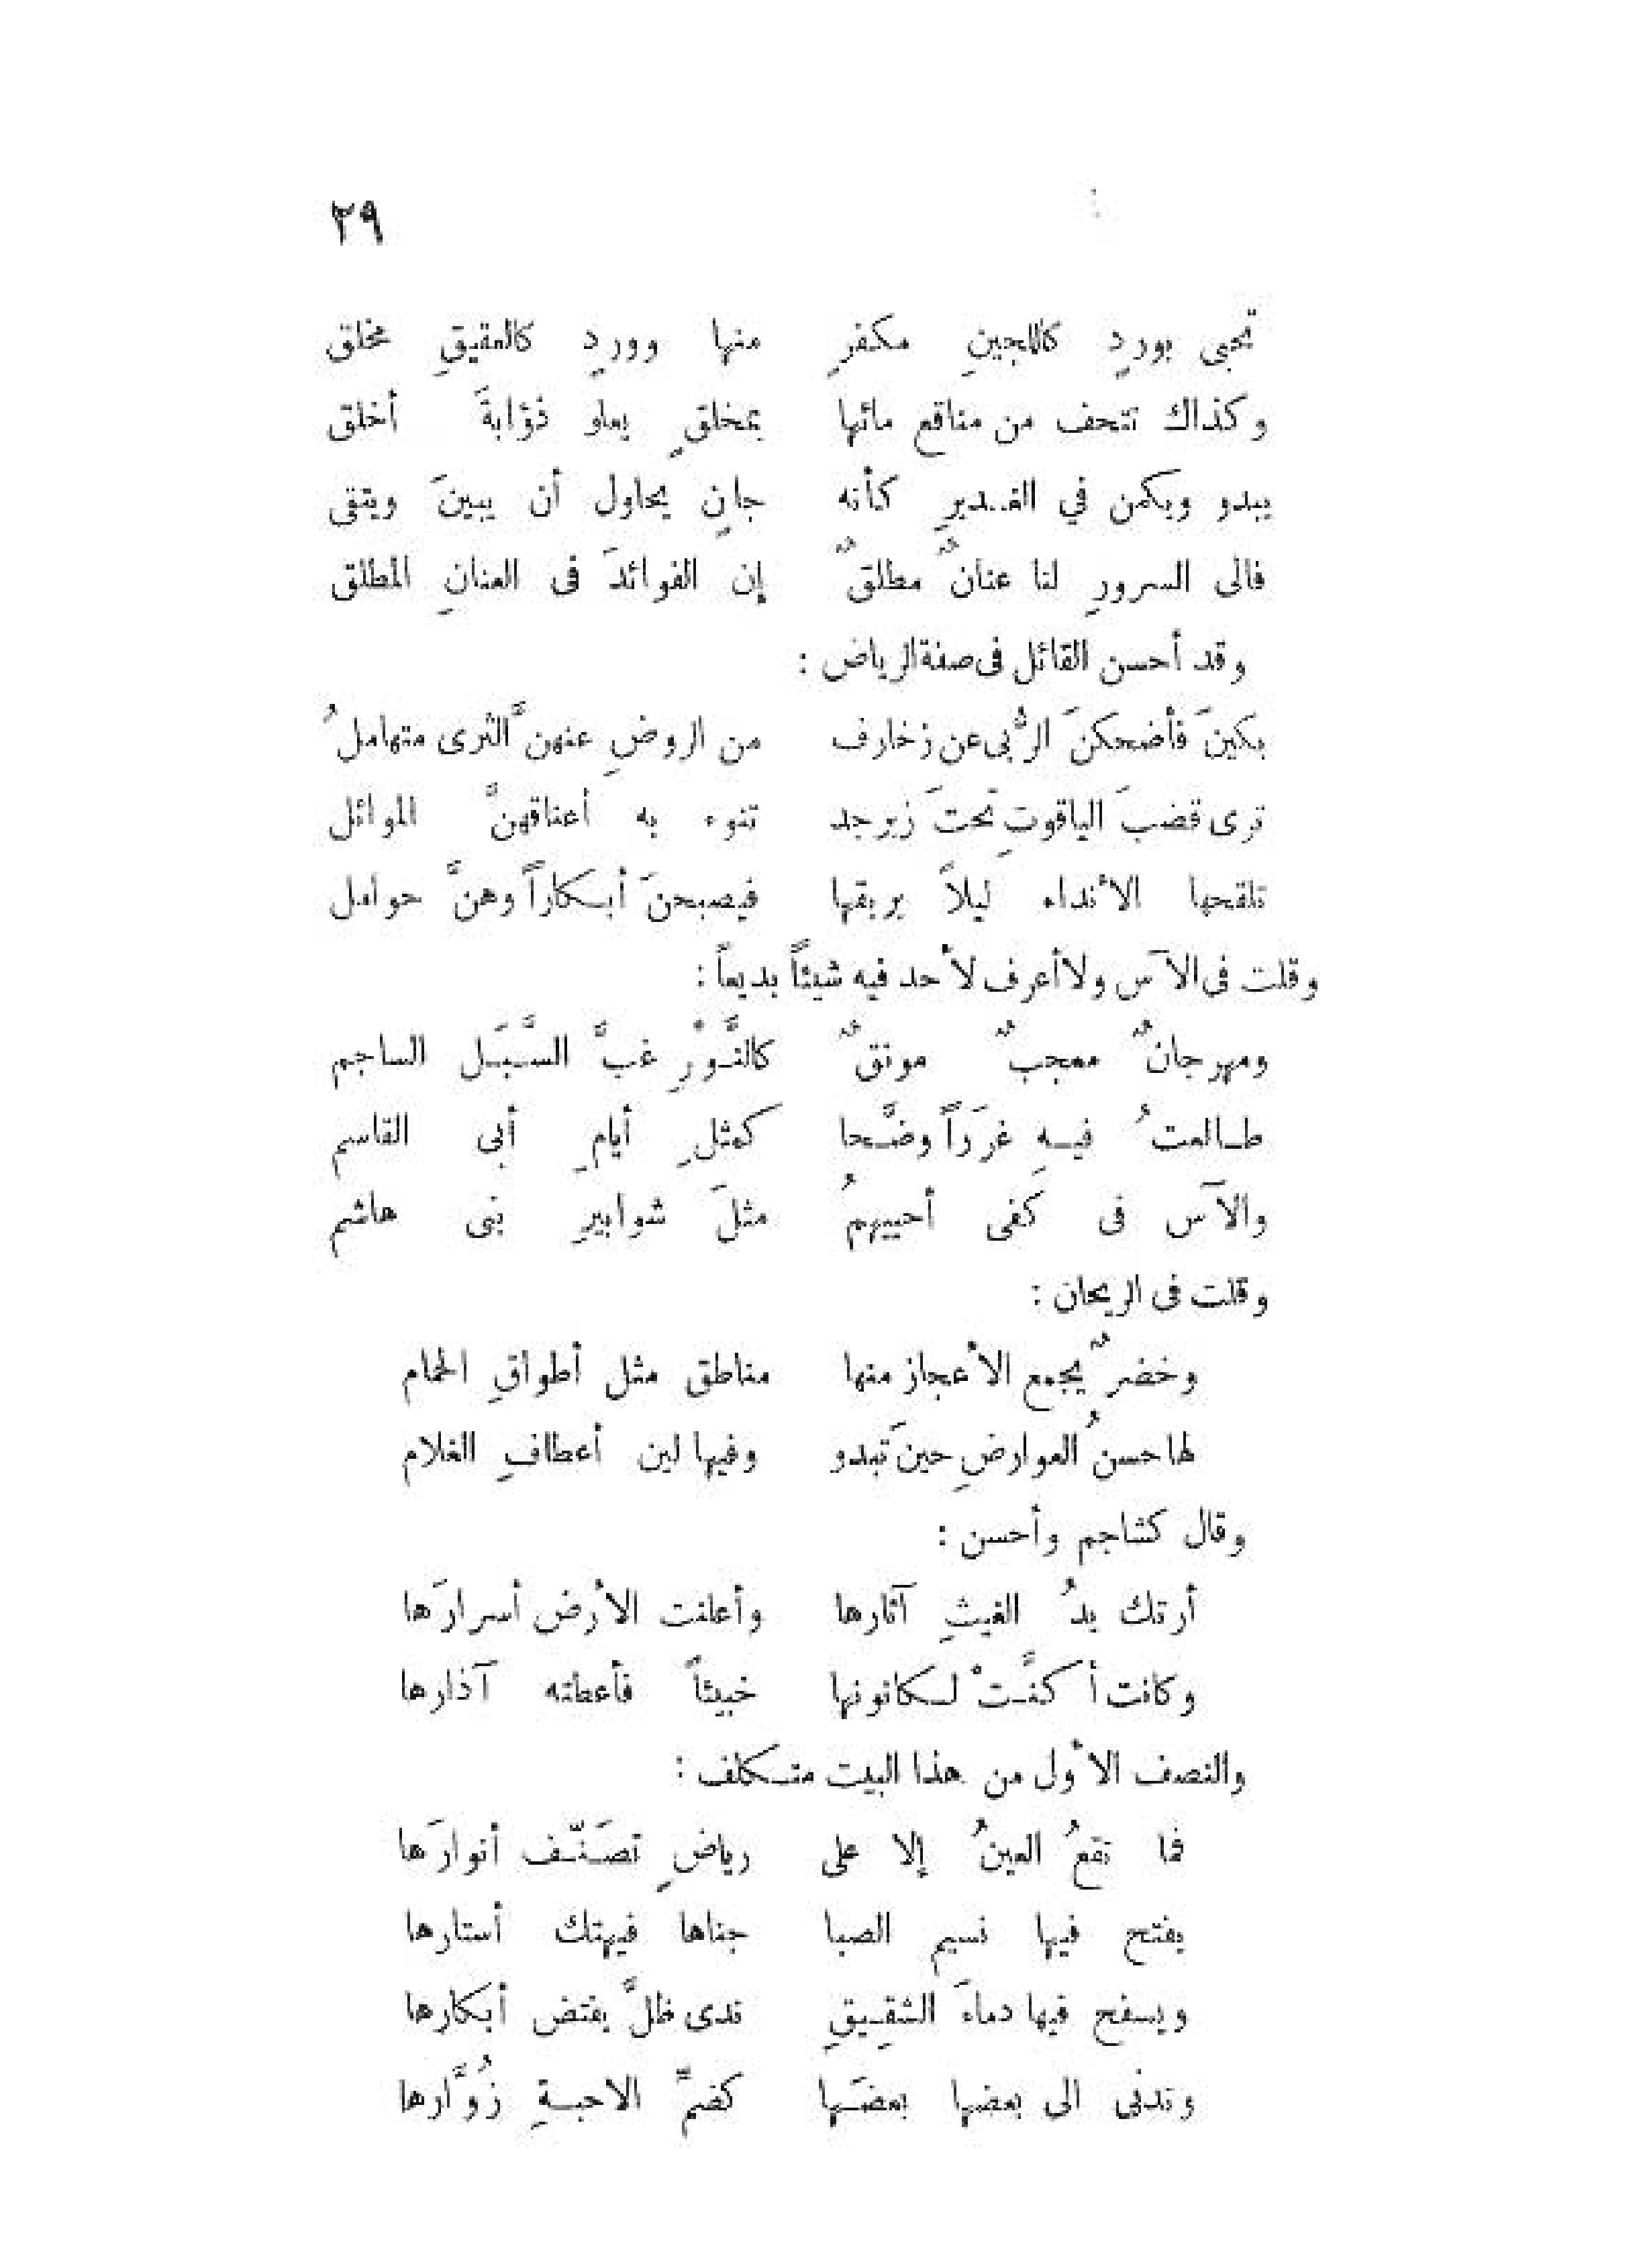 ٢٩
تجبى بوردٍ كاللجينِ مكفرِ منها ووردٍ كالعقيقِ مخلق
وكذاك تتحف من مناقع مائها بمخلقٍ يعلو ذؤابةَ أخلق
يبدو ويكمن في الغـديرِ كأنه جانٍ يحاول أن يبينَ ويتقى
فالى السرورِ لنا عنانٌ مطلقٌ إن الفوائدَ فى العنانِ المطلق
وقد أحسن القائل فى صفة الرياض :
بكينَ فأضحكنَ الرُّبى عن زخارف من الروضِ عنهنَّ الثرى متهاملُ
ترى قضبَ الياقوتِ تحتَ زبرجد تنوء به أعناقهنَّ الموائل
تلقحها الأنداء ليلاً بريقها فيصبحنَ أبـكاراً وهنَّ حوامل
وقلت فى الآس ولا أعرف لأحد فيه شيئاً بديعاً :
ومهرجانٌ معجبٌ مونقٌ كالنَّـوْرِ غبَّ السَّـبَـل الساجم
طـالعتُ فيـهِ غرَراً وضَّـحا كمثلِ أيامِ أبى القاسم
والآس فى كفى أحييهمُ مثلَ شوابيرِ بنى هاشم
وقلت فى الريحان :
وخضرٌ يجمع الأعجاز منها مناطق مثل أطواقِ الحمام
لها حسنُ العوارضِ حينَ تبدو وفيها لين أعطافِ الغلام
وقال كشاجم وأحسن :
أرتك يدُ الغيثِ آثارها وأعلنت الأرض أسرارَها
وكانت أكنَّـتْ لـكانونها خبيئاً فأعطته آذارها
والنصف الأول من هذا البيت متـكلف :
فما تقعُ العينُ إلا على رياضٍ تصَـنّـف أنوارَها
يفتح فيها نسيم الصبا جناها فيهتك أستارها
ويسفح فيها دماءَ الشقِـيقِ ندى ظلَّ يفتض أبكارها
وتدنى الى بعضها بعضَـها كضمِّ الاحبـةِ زُوَّارها